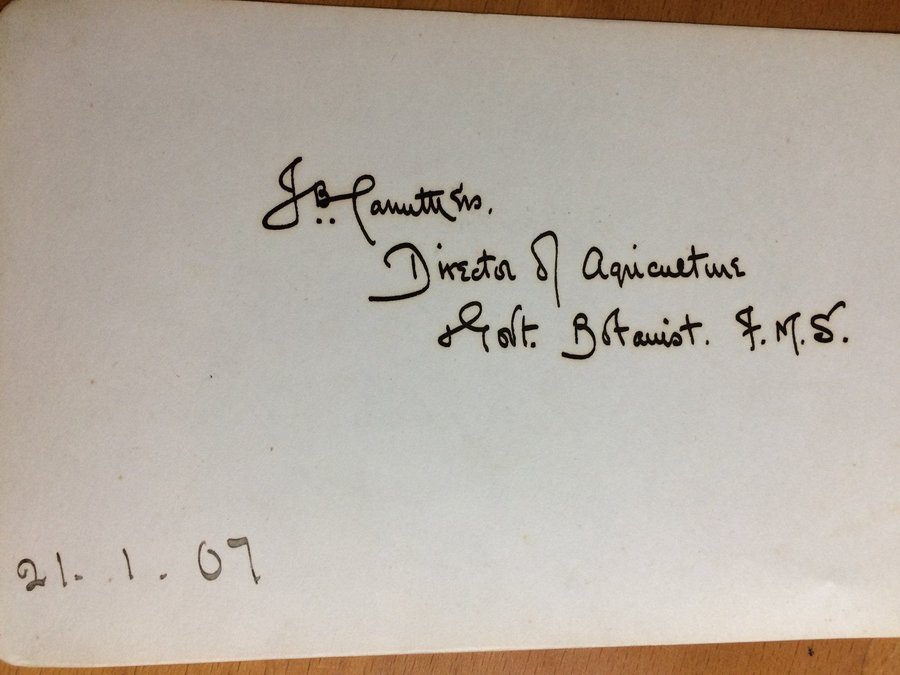 J.B. Carruthers.
Director of Agriculture
& Govt. Botanist. F.M.S.
21. 1. 07